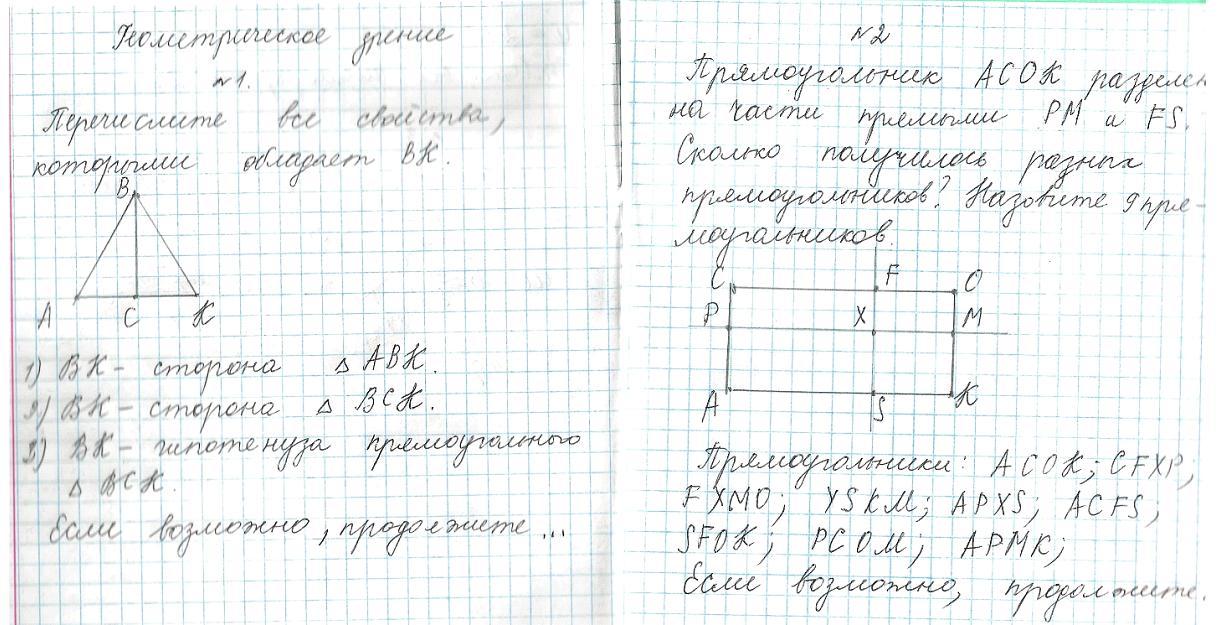 Геометрическое зрение
№1.
Перечислите все свойства,
которыми обладает ВК.
В
А С К
1) ВК - сторона △ АВК.
2) ВК - сторона △ ВСК.
3) ВК - гипотенуза прямоугольного
△ ВСК.
Если возможно, продолжите...
№2
Прямоугольник АСОК разделен
на части прямыми РМ и FS.
Сколько получилось разных
прямоугольников? Назовите 9 пря-
моугольников.
С F О
Р Х М
А S К
Прямоугольники: АСОК; CFXP;
FXMO; YSKM; APXS; ACFS;
SFOK; РСОМ; АРМК;
Если возможно, продолжите.